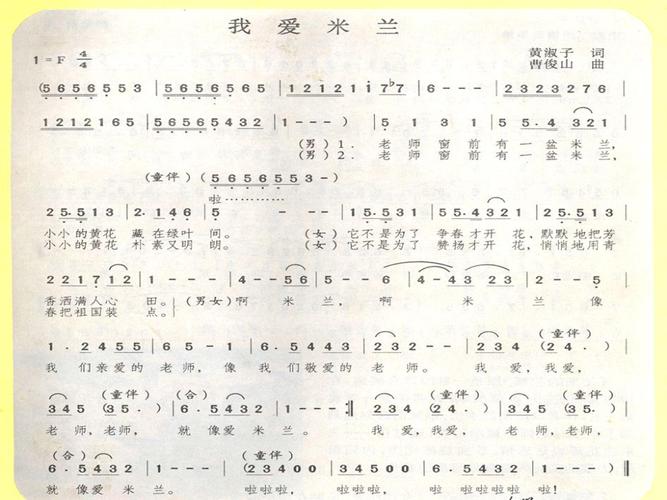 我爱米兰
1=F 4/4
黄淑子 词
曹俊山 曲
(5656553 | 5656565 | 121211̇77 | 6--- | 2323276 |
1212165 | 56565432 | 1---) | 5 1 3 1 | 55.4 321 |
(男)1. 老师窗前有一盆米兰,
(男)2. 老师窗前有一盆米兰,
(童伴)(5656553-)
啦…………
25.513 | 2.146 | 5--- | 15.531 | 55.4321 | 25.513 |
小小的黄花 藏在绿叶 间。 (女)它不是为了 争春才开 花,默默地把芳
小小的黄花 朴素又明 朗。 (女)它不是为了 赞扬才开 花,悄悄地用青
221712 | 1--- | 1--- | 4--56 | 6--- | 2--5 |
香洒满人心 田。(男女)啊 米 兰,啊 米 兰 像
春把祖国装 点。
1.2455 | 65-1 | 6.5432 | 1--- | (童伴)
我 们亲爱的 老师,像 我 们敬爱的 老 师。 我 爱,我爱,
345 (35.) | 6.5432 | 1--- :‖ 345 (35.)
(童伴) (合) (童伴)
老 师,老师, 就 像爱 米 兰。 我 爱,我爱, 老 师,老师,
(合)
6.5432 | 1--- | 234500 | 234500
就 像爱 米 兰。 啦啦啦, 啦啦啦, 啦 啦啦啦 啦!